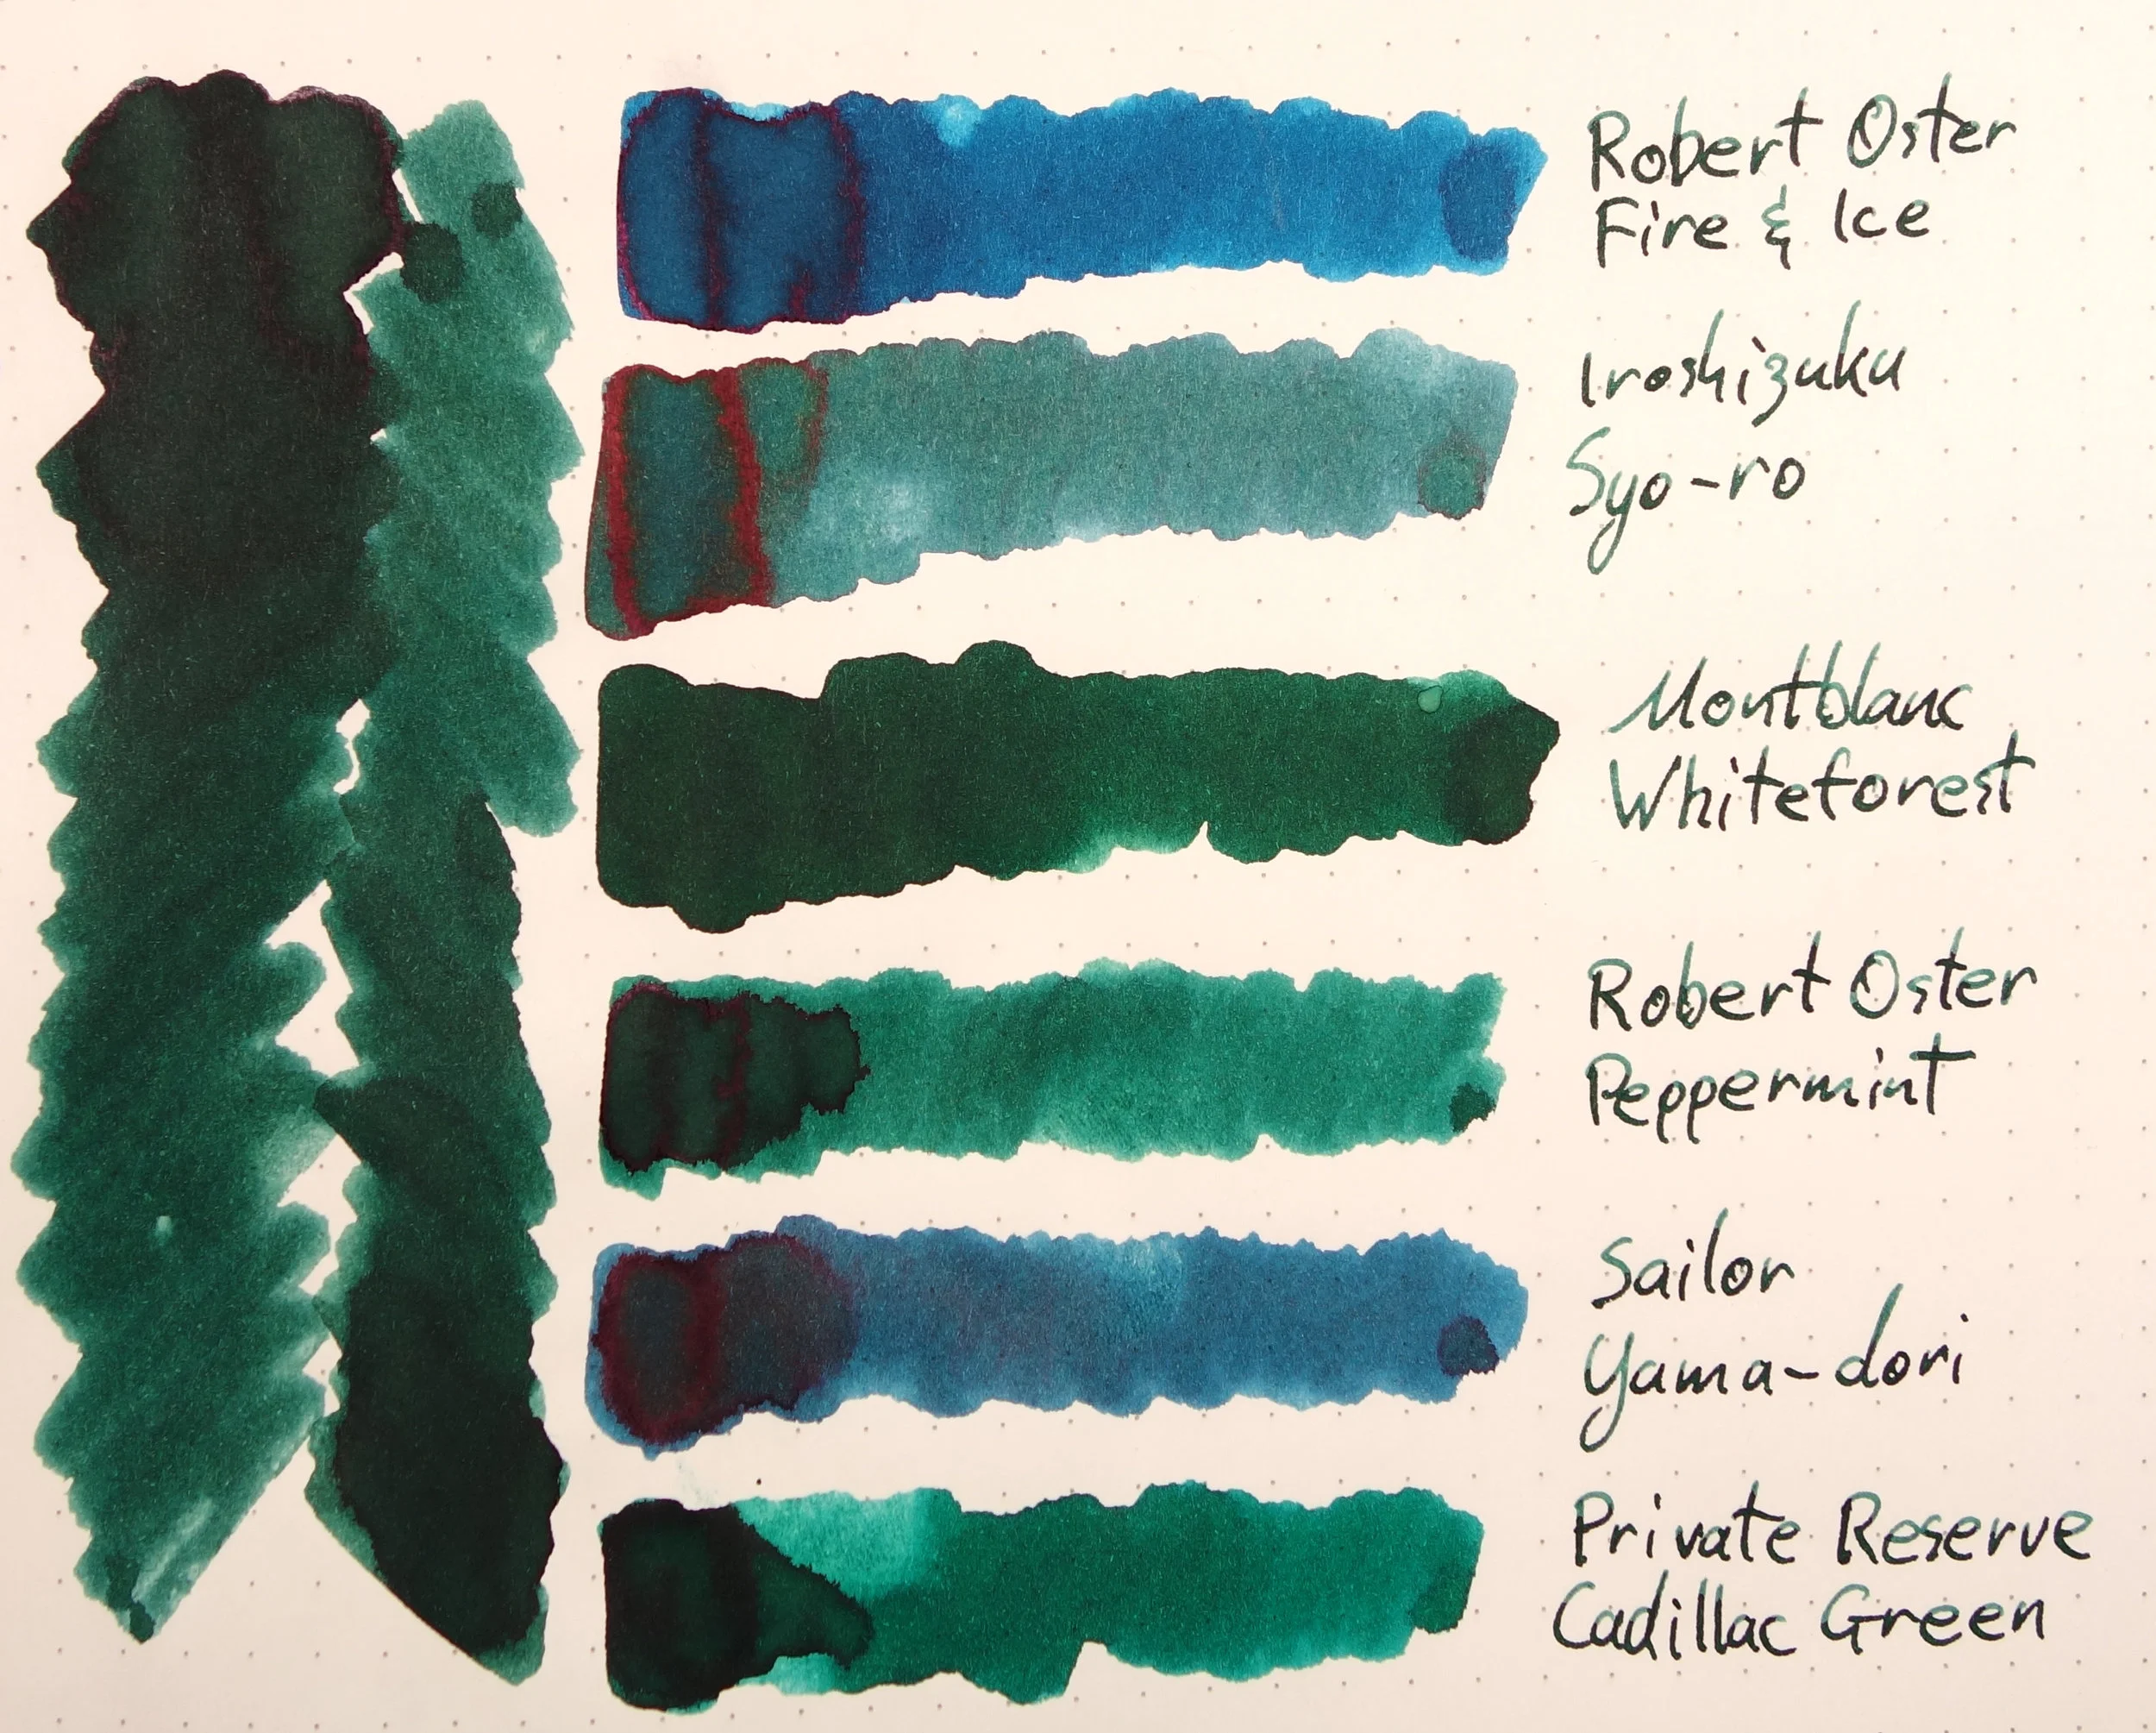 Robert Oster
Fire & Ice
Iroshizuku
Syo-ro
Montblanc
Whiteforest
Robert Oster
Peppermint
Sailor
Yama-dori
Private Reserve
Cadillac Green